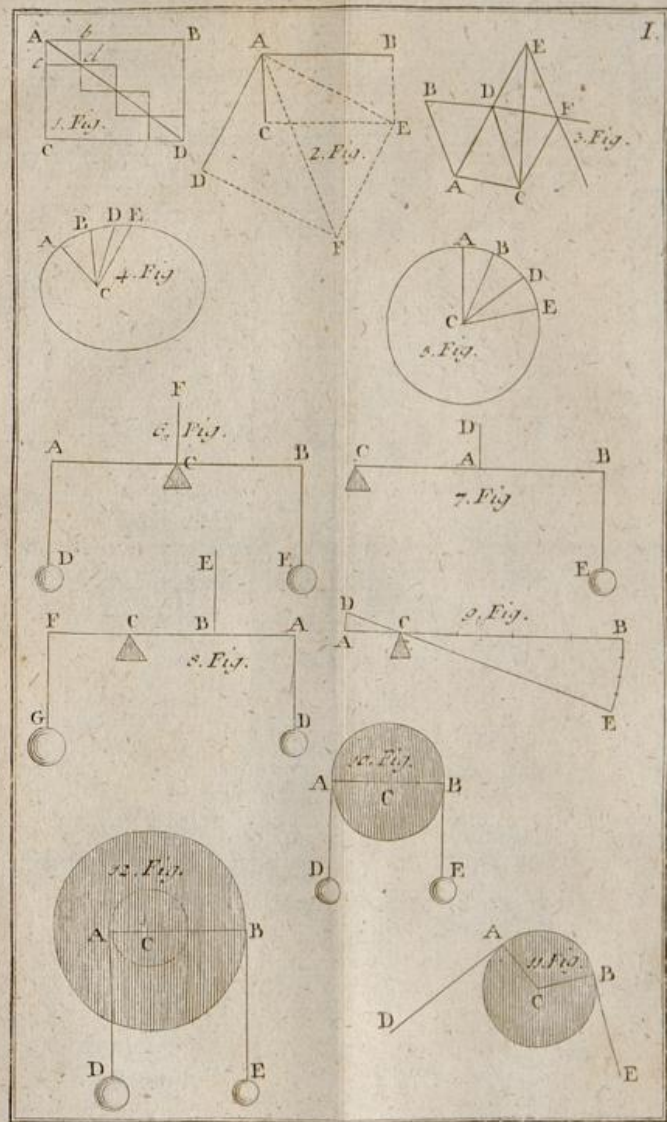 I.
A b B
c d
1. Fig.
C D
A B
C E
2. Fig.
D
F
E
B D F
3. Fig.
A C
A B D E
4. Fig
C
A B
D
C E
5. Fig.
F
6. Fig.
A C B
D E
D
C A B
7. Fig
E
E
F C B A
8. Fig.
G D
D
A C B
9. Fig.
E
10. Fig.
A C B
D E
12. Fig.
A C B
D E
A
11. Fig.
C B
D
E